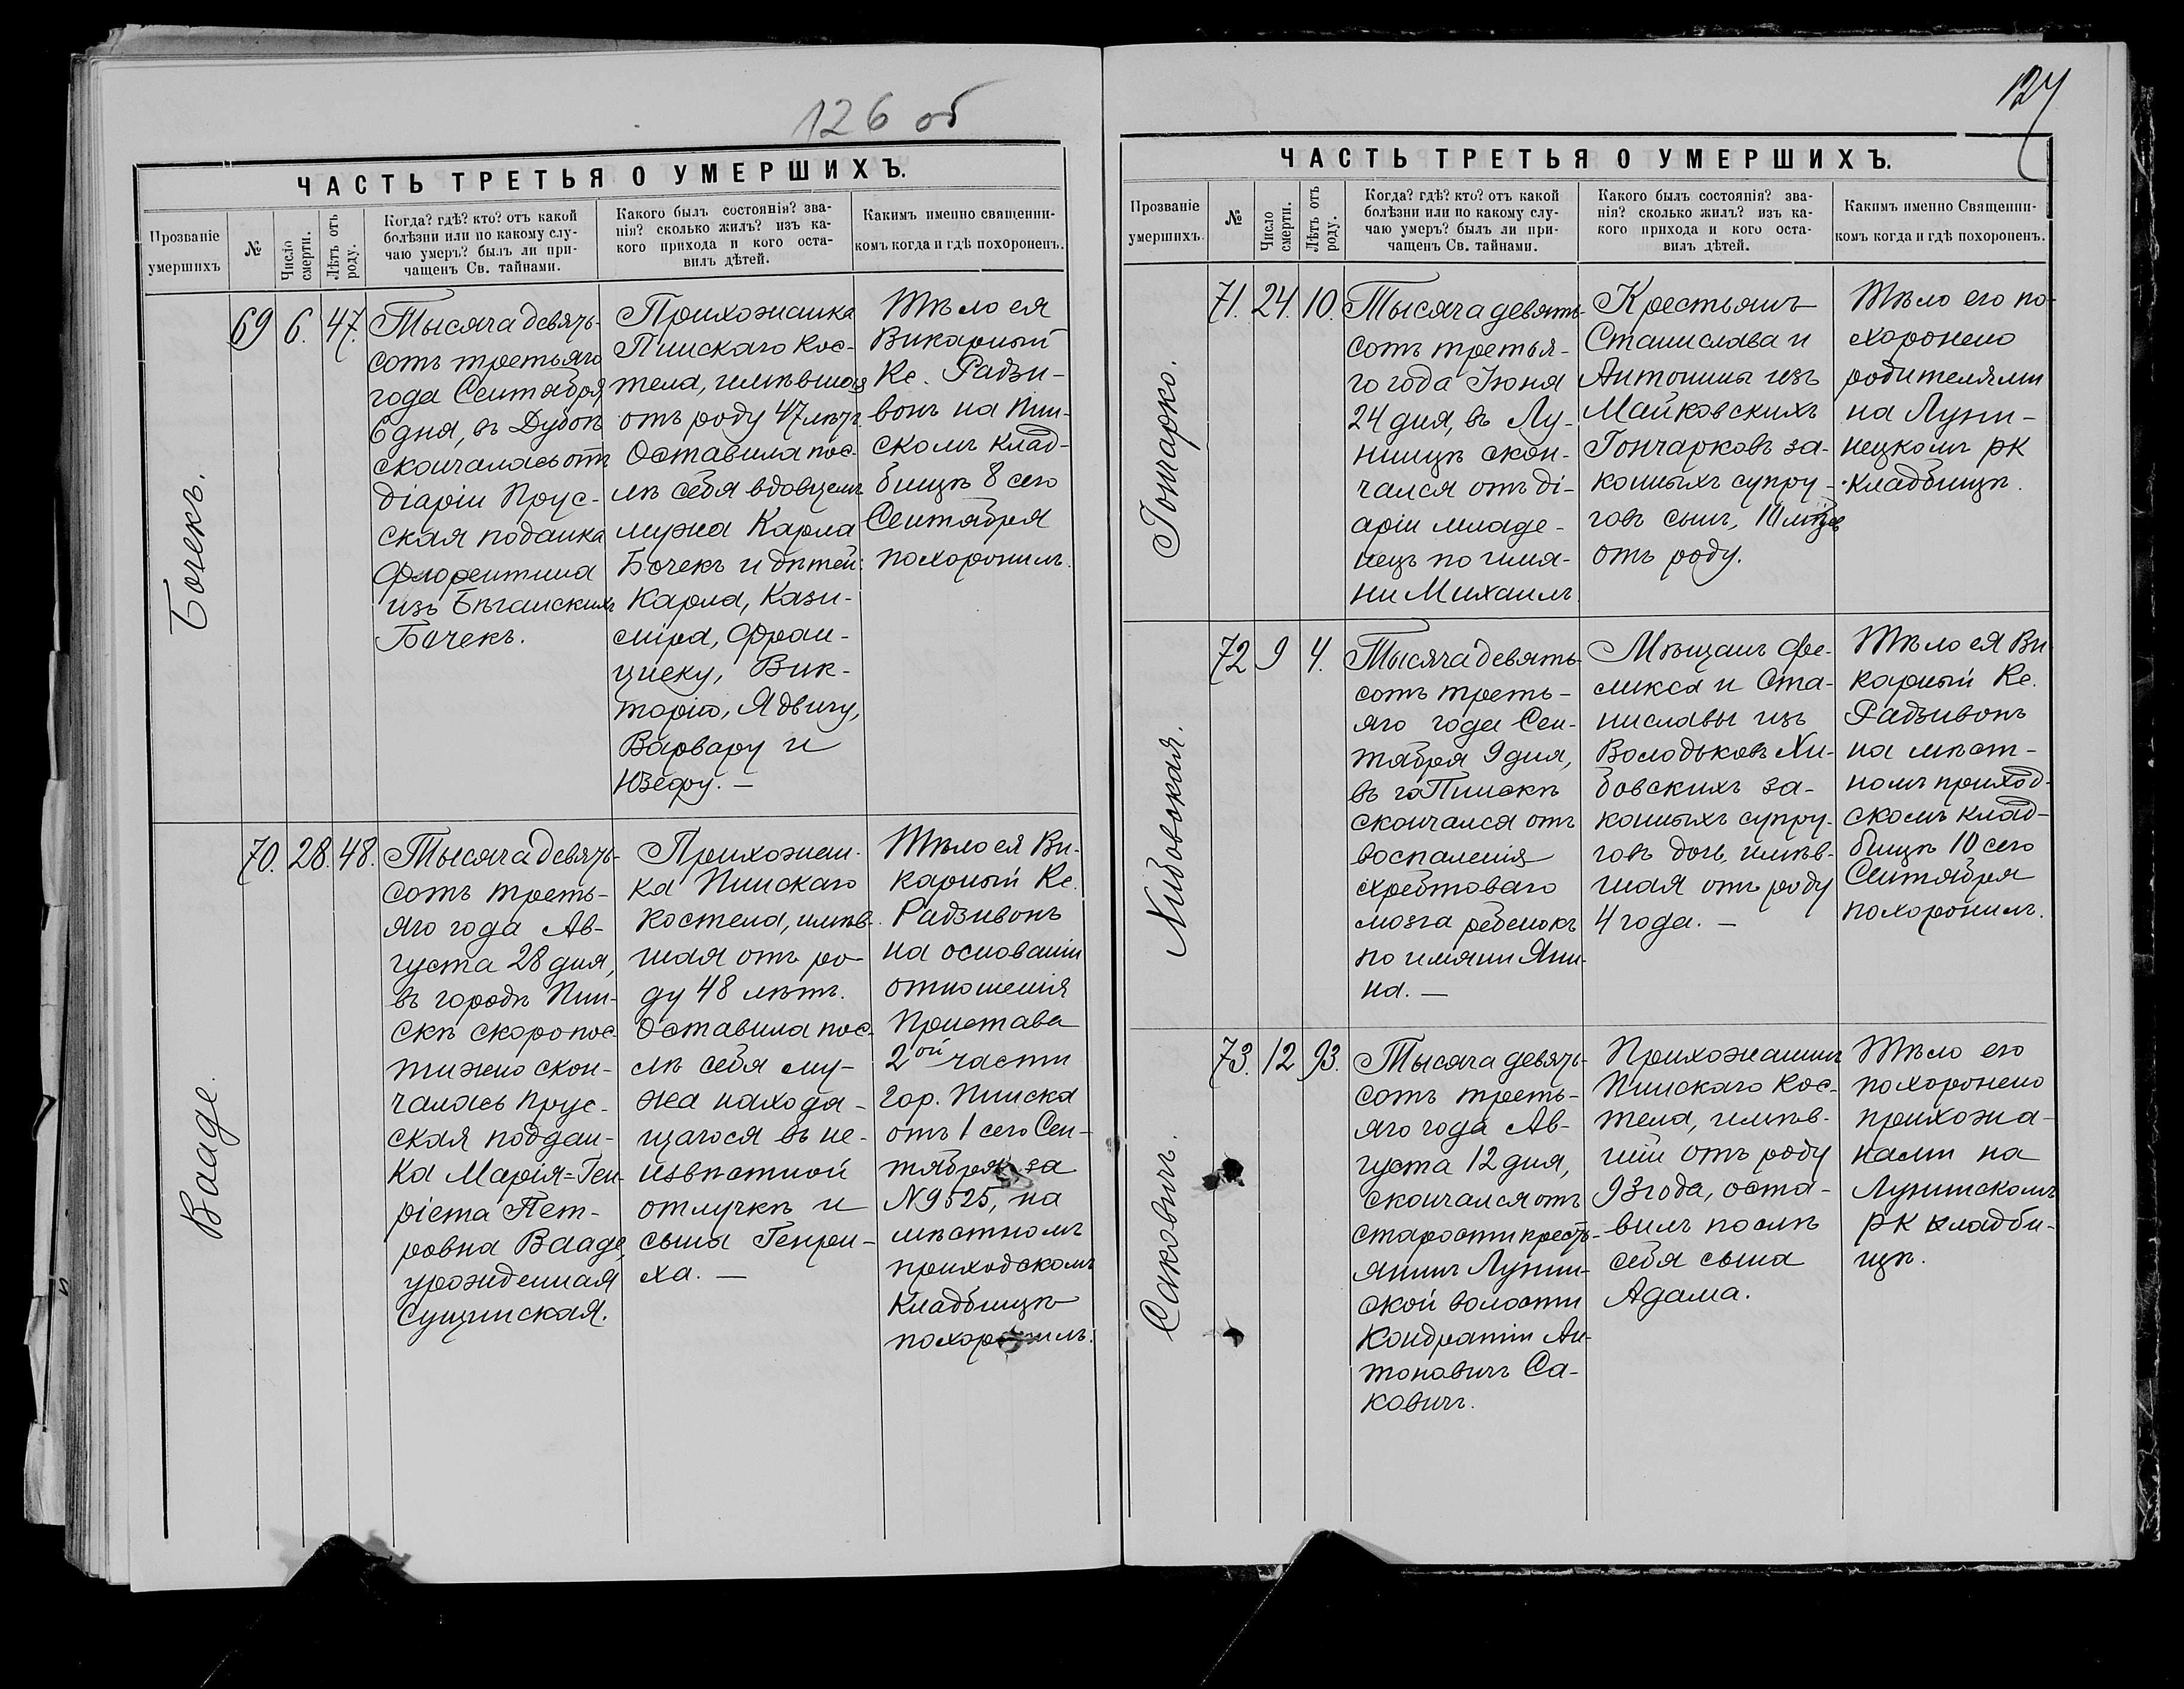 126 об
ЧАСТЬ ТРЕТЬЯ О УМЕРШИХЪ.
Прозваніе
умершихъ
№
Число
смерти.
Лѣтъ отъ
роду.
Когда? гдѣ? кто? отъ какой
болѣзни или по какому слу-
чаю умеръ? былъ ли при-
чащенъ Св. тайнами.
Какого былъ состоянія? зва-
нія? сколько жилъ? изъ ка-
кого прихода и кого оста-
вилъ дѣтей.
Какимъ именно священни-
комъ когда и гдѣ похороненъ.
Бочекъ.
69 6. 47.
Тысяча девять-
сотъ третьяго
года Сентября
6 дня, въ Дубоѣ
скончалась отъ
діаріи Прус-
ская поданка
Флорентина
изъ Бѣганскихъ
Бочекъ.
Прихожанка
Пинскаго Кос-
тела, имѣвшая
отъ роду 47 лѣтъ.
Оставила пос-
лѣ себя вдовцемъ
мужа Карла
Бочекъ и дѣтей:
Карла, Кази-
міра, Фран-
циску, Вик-
торію, Ядвигу,
Варвару и
Юзефу. —
Тѣло ея
Викарный
Кс. Радзи-
вонъ на Пин-
скомъ клад-
бищѣ 8 сего
Сентября
похоронилъ.
Вааде.
70. 28. 48.
Тысяча девять-
сотъ треть-
яго года Ав-
густа 28 дня,
въ городѣ Пин-
скѣ скоропос-
тижно скон-
чалась Прус-
ская поддан-
ка Марія=Ген-
ріета Пет-
ровна Вааде,
урожденная
Сущинская.
Прихожан-
ка Пинскаго
Костела, имѣв-
шая отъ ро-
ду 48 лѣтъ.
Оставила пос-
лѣ себя му-
жа находя-
щагося въ не-
извѣстной
отлучкѣ и
сына Генри-
ха. —
Тѣло ея Ви-
карный Кс.
Радзивонъ
на основаніи
отношенія
Пристава
2ой части
гор. Пинска
отъ 1 сего Сен-
тября за
N9525, на
мѣстномъ
приходскомъ
кладбищѣ
похоронилъ.
127
ЧАСТЬ ТРЕТЬЯ О УМЕРШИХЪ.
Прозваніе
умершихъ.
№
Число
смерти.
Лѣтъ отъ
роду.
Когда? гдѣ? кто? отъ какой
болѣзни или по какому слу-
чаю умеръ? былъ ли при-
чащенъ Св. тайнами.
Какого былъ состоянія? зва-
нія? сколько жилъ? изъ ка-
кого прихода и кого оста-
вилъ дѣтей.
Какимъ именно Священни-
комъ когда и гдѣ похороненъ.
Гончарко.
71. 24. 10.
Тысяча девять-
сотъ третья-
го года Іюня
24 дня, въ Лу-
нинцѣ скон-
чался отъ ді-
аріи младе-
нецъ по имя-
ни Михаилъ
Крестьянъ
Станислава и
Антонины изъ
Майковскихъ
Гончарковъ за-
конныхъ супру-
говъ сынъ, 10
отъ роду.
Тѣло его по-
хоронено
родителями
на Луни-
нецкомъ РК
кладбищѣ.
Хибовская.
72 9 4.
Тысяча девять-
сотъ треть-
яго года Сен-
тября 9 дня,
въ Пинскѣ
скончался отъ
воспаленія
хребтоваго
мозга ребенокъ
по имяни Яни-
на. —
Мѣщанъ Фе-
ликса и Ста-
ниславы изъ
Володьковъ Хи-
бовскихъ за-
конныхъ супру-
говъ дочь, имѣв-
шая отъ роду
4 года. —
Тѣло ея Ви
карный Кс.
Радзивонъ
на мѣст-
номъ приход-
скомъ клад-
бищѣ 10 сего
Сентября
похоронилъ.
Саковичъ.
73. 12 93.
Тысяча девять-
сотъ треть-
яго года Ав-
густа 12 дня,
скончался отъ
старости кресть-
янинъ Лунин-
ской волости
Кондратій Ан-
тоновичъ Са-
ковичъ.
Прихожанинъ
Пинскаго Кос-
тела, имѣв-
шій отъ роду
93 года, оста-
вилъ послѣ
себя сына
Адама.
Тѣло его
похоронено
прихожа-
нами на
Лунинскомъ
РК кладби-
щѣ.